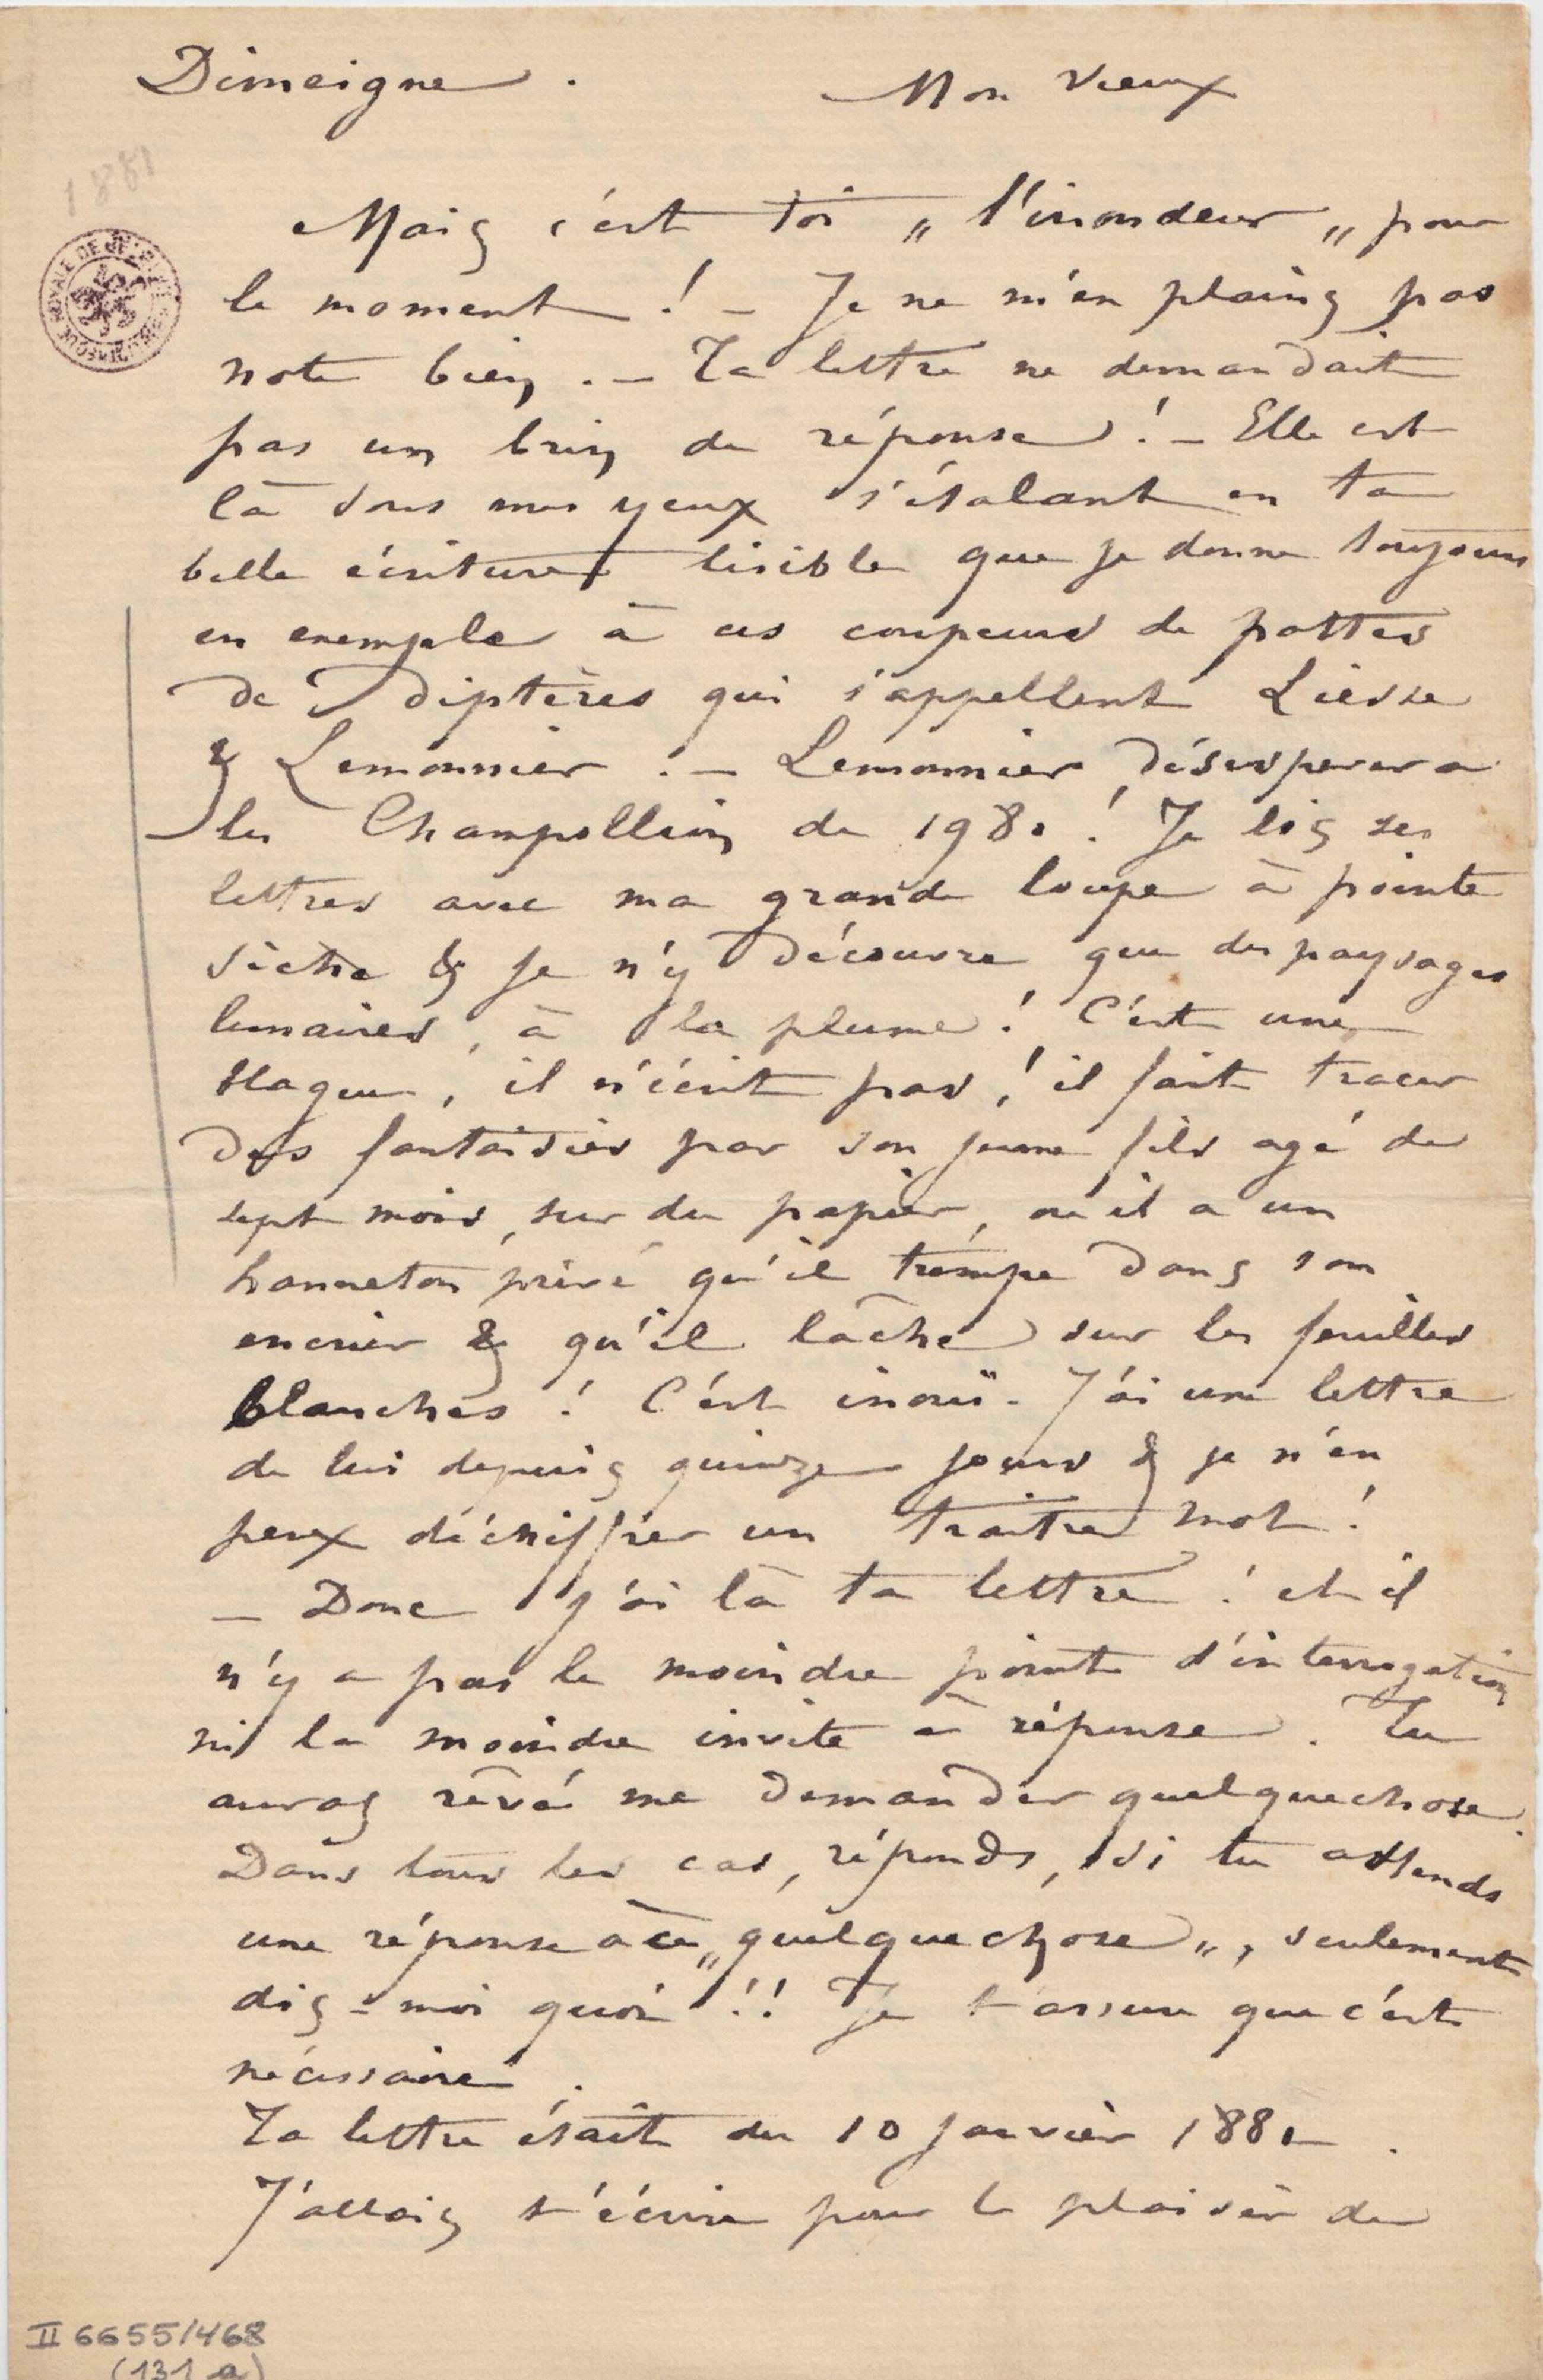 Dimeigne. Mon Vieux
1881
Mais c'est toi „ l'inondeur „ pour
le moment ! – Je ne m'en plains pas
note bien. – Ta lettre ne demandait
pas un brin de réponse ! – Elle est
là sous mes yeux s'étalant en ta
belle écriture lisible que je donne toujours
en exemple à ces coupeurs de pattes
de diptères qui s'appellent Liesse
& Lemonnier. – Lemonnier désesperera
les Champollion de 1980 ! Je lis ses
lettres avec ma grande loupe à pointe
sèche & je n'y découvre que des paysages
lunaires, à la plume ! C'est une
blague, il n'écrit pas, ! il fait tracer
des fantaisies par son jeune fils agé de
sept mois, sur du papier, ou il a un
hanneton privé qu'il trempe dans son
encrier & qu'il lâche sur les feuilles
blanches ! C'est inouï. J'ai une lettre
de lui depuis quinze jours & je n'en
peux déchiffrer un traitre mot !
– Donc j'ai là ta lettre ! et il
n'y a pas le moindre point d'interrogation
ni la moindre invite à réponse. Tu
auras rêvé me demander quelquechose.
Dans tous les cas, réponds, si tu attends
une réponse à ce „ quelquechose „, seulement
dis-moi quoi !! Je t'assure que c'est
nécessaire.
Ta lettre était du 10 janvier 1881.
J'allais t'écrire pour le plaisir de
II 6655/468
(131 a)